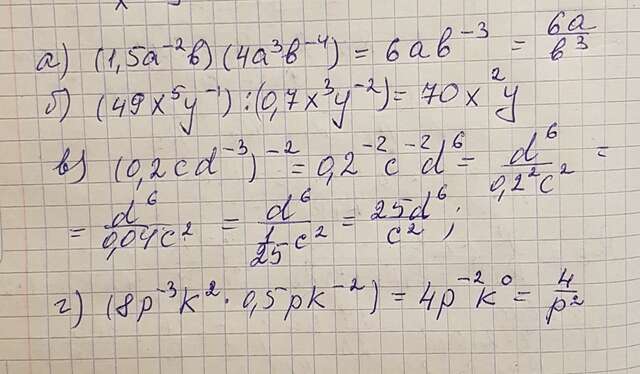 а) (1,5a⁻²b)(4a³b⁻⁴) = 6ab⁻³ = 6a/b³
б) (49x⁵y⁻¹):(0,7x³y⁻²)= 70x²y
в) (0,2cd⁻³)⁻² = 0,2⁻²c⁻²d⁶ = d⁶/0,2²c² =
= d⁶/0,04c² = d⁶/(1/25)c² = 25d⁶/c² ;
г) (8p⁻³k² · 0,5pk⁻²) = 4p⁻²k⁰ = 4/p²